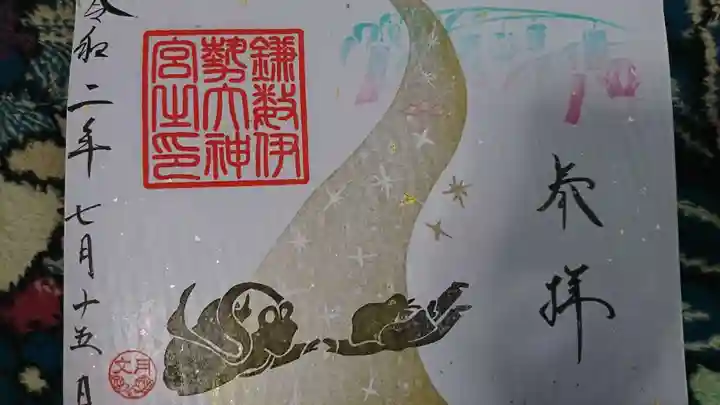 奉拝
鎌数伊
勢大神
宮之印
令和二年七月十五日
文月